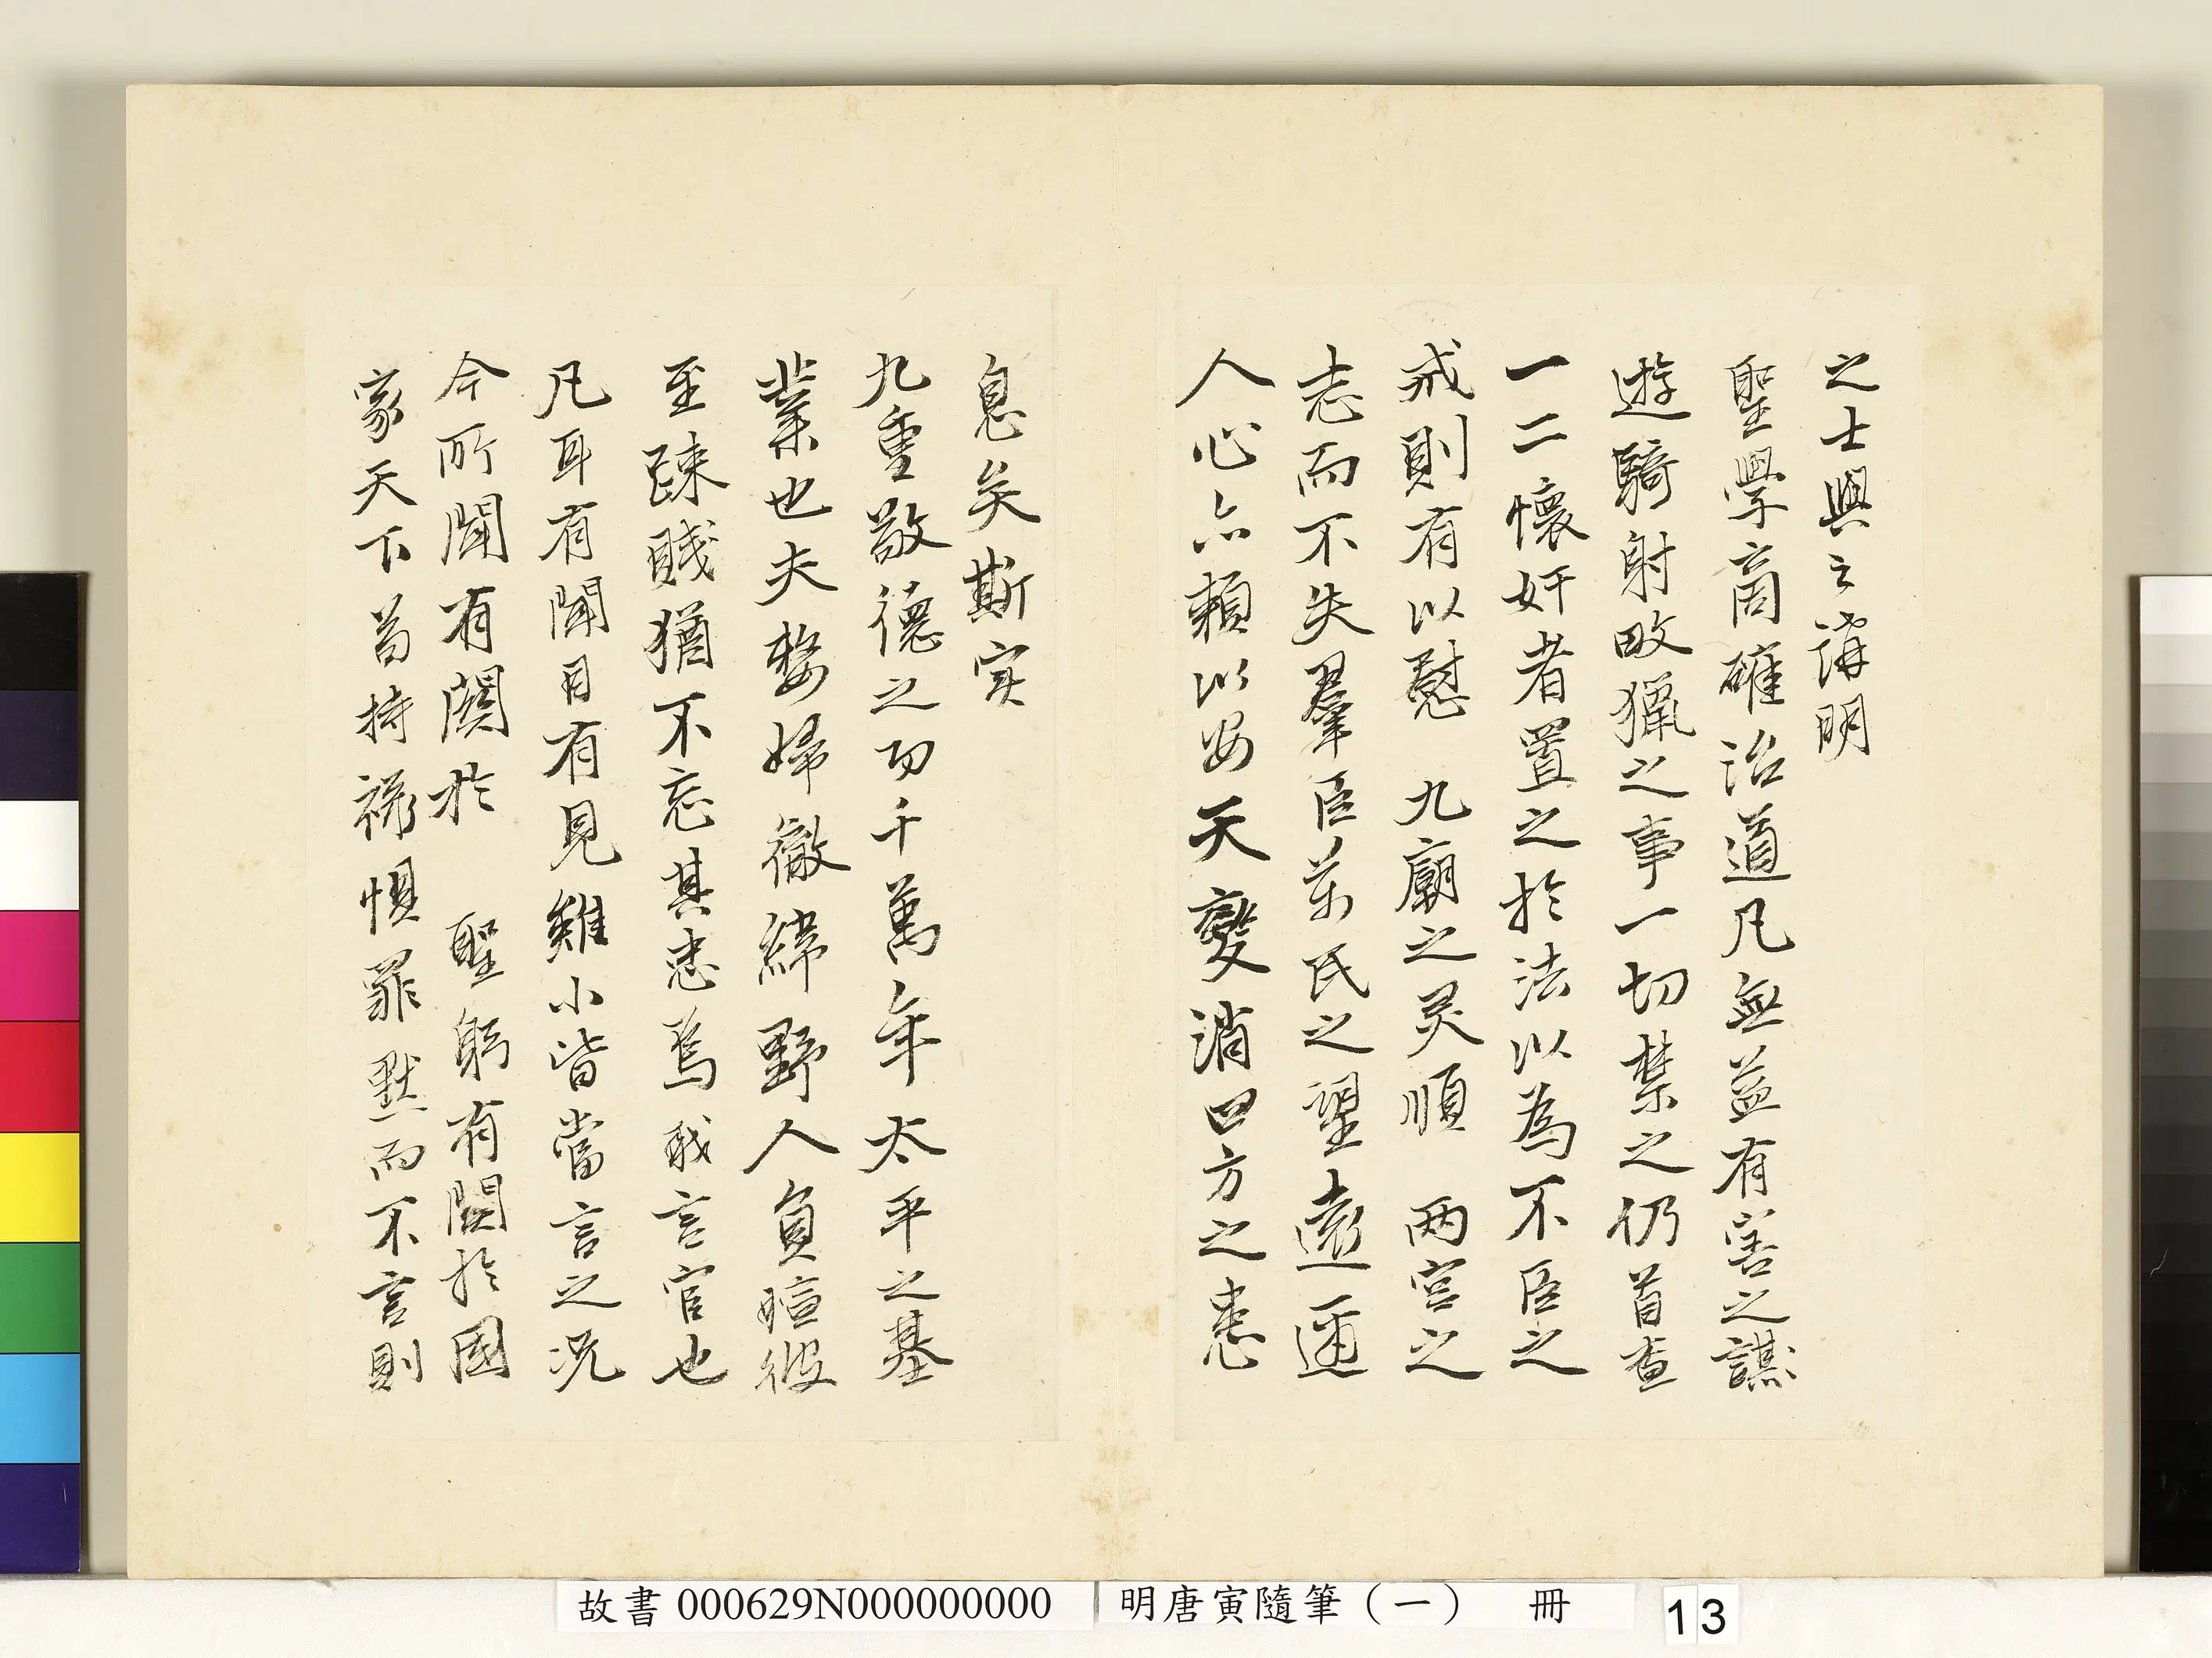 之士與之講明
聖學商確治道凡無益有害之謀
遊騎射畋獵之事一切禁之仍首查
一二懷奸者置之於法以為不臣之
戒則有以慰　九廟之灵順　两宮之
志而不失羣臣萬民之望遠邇
人心亦賴以安天變消四方之患
息矣斯实
九重敬德之功千萬年太平之基
業也夫嫠婦徹緯野人負暄彼
至踈賤猶不忘其忠焉我言官也
凡耳有聞目有見雖小皆當言之况
今所聞有関於　聖躬有関於国
家天下苟持祿惧罪默而不言則
故書 000629N000000000 明唐寅隨筆（一）　冊 13